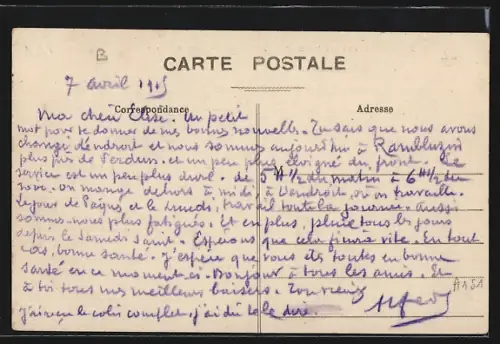 B
7 avril 1915
CARTE POSTALE
Correspondance
Adresse
Ma chère Elise. Un petit
mot pour te donner de mes bonnes nouvelles. Tu sais que nous avons
changé d'endroit et nous sommes aujourd'hui à Rambluzin
plus près de Verdun. et un peu plus éloigné du front. Le
service est un peu plus dur. de 5 H 1/2 du matin à 6 H 1/2 du
soir. on mange dehors à midi, à l'endroit, où on travaille.
Le jour de Pâques et le lundi, travail toute la journée. aussi
sommes-nous plus fatigués. Et en plus, pluie tous les jours
depuis le Samedi Saint. Espérons que cela finira vite. En tout
cas, bonne santé. J'espère que vous êtes toutes en bonne
santé en ce moment-ci. Bonjour à tous les amis. Et
à toi tous mes meilleurs baisers. Ton
J'ai reçu le colis complet, j'ai dû te le dire.
A151